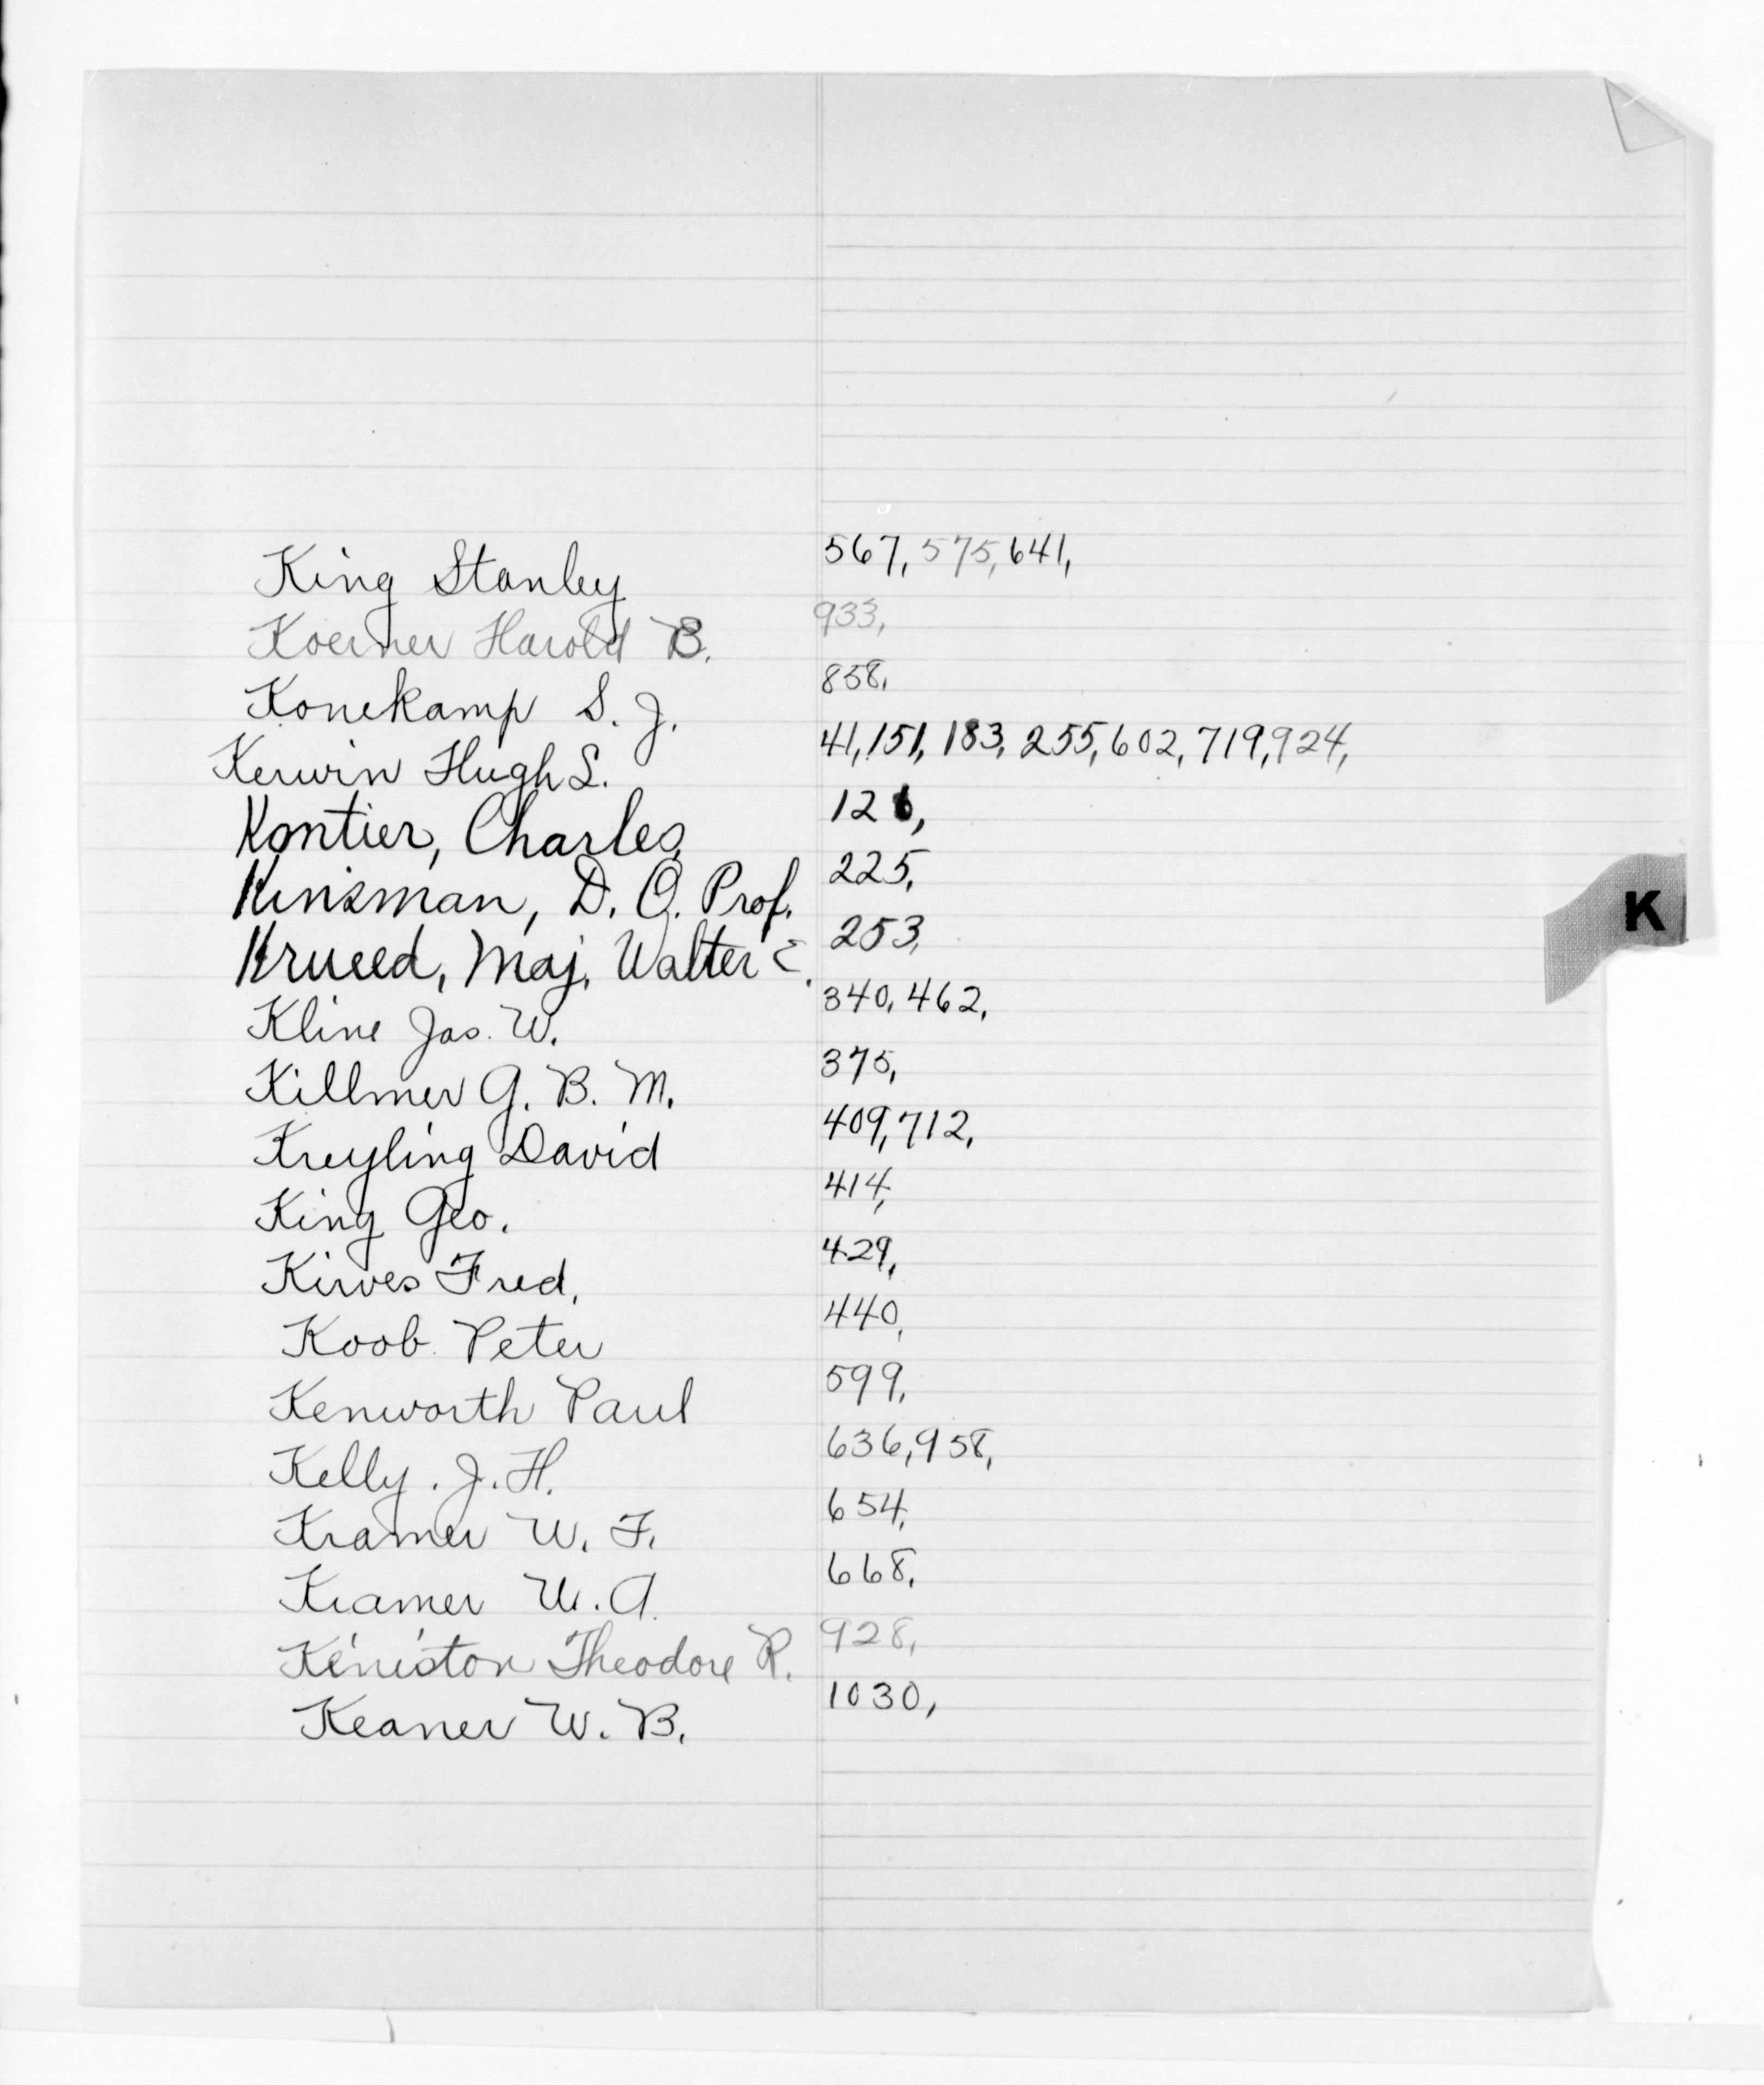 King Stanley 567, 575, 641,
Koerner Harold B. 933,
Konekamp S. J. 858,
Kerwin Hugh L. 41, 151, 183, 255, 602, 719, 924,
Kontier, Charles, 126,
Kinsman, D. O. Prof. 225,
Krueed, Maj. Walter E. 253,
Kline Jas. W. 340, 462,
Killmer G. B. M. 375,
Kreyling David 409, 712,
King Geo. 414,
Kirves Fred. 429,
Koob Peter 440,
Kenworth Paul 599,
Kelly. J. H. 636, 958,
Kramer W. F. 654,
Kramer W. A. 668,
Keniston Theodore R. 928,
Keaner W. B. 1030,
K